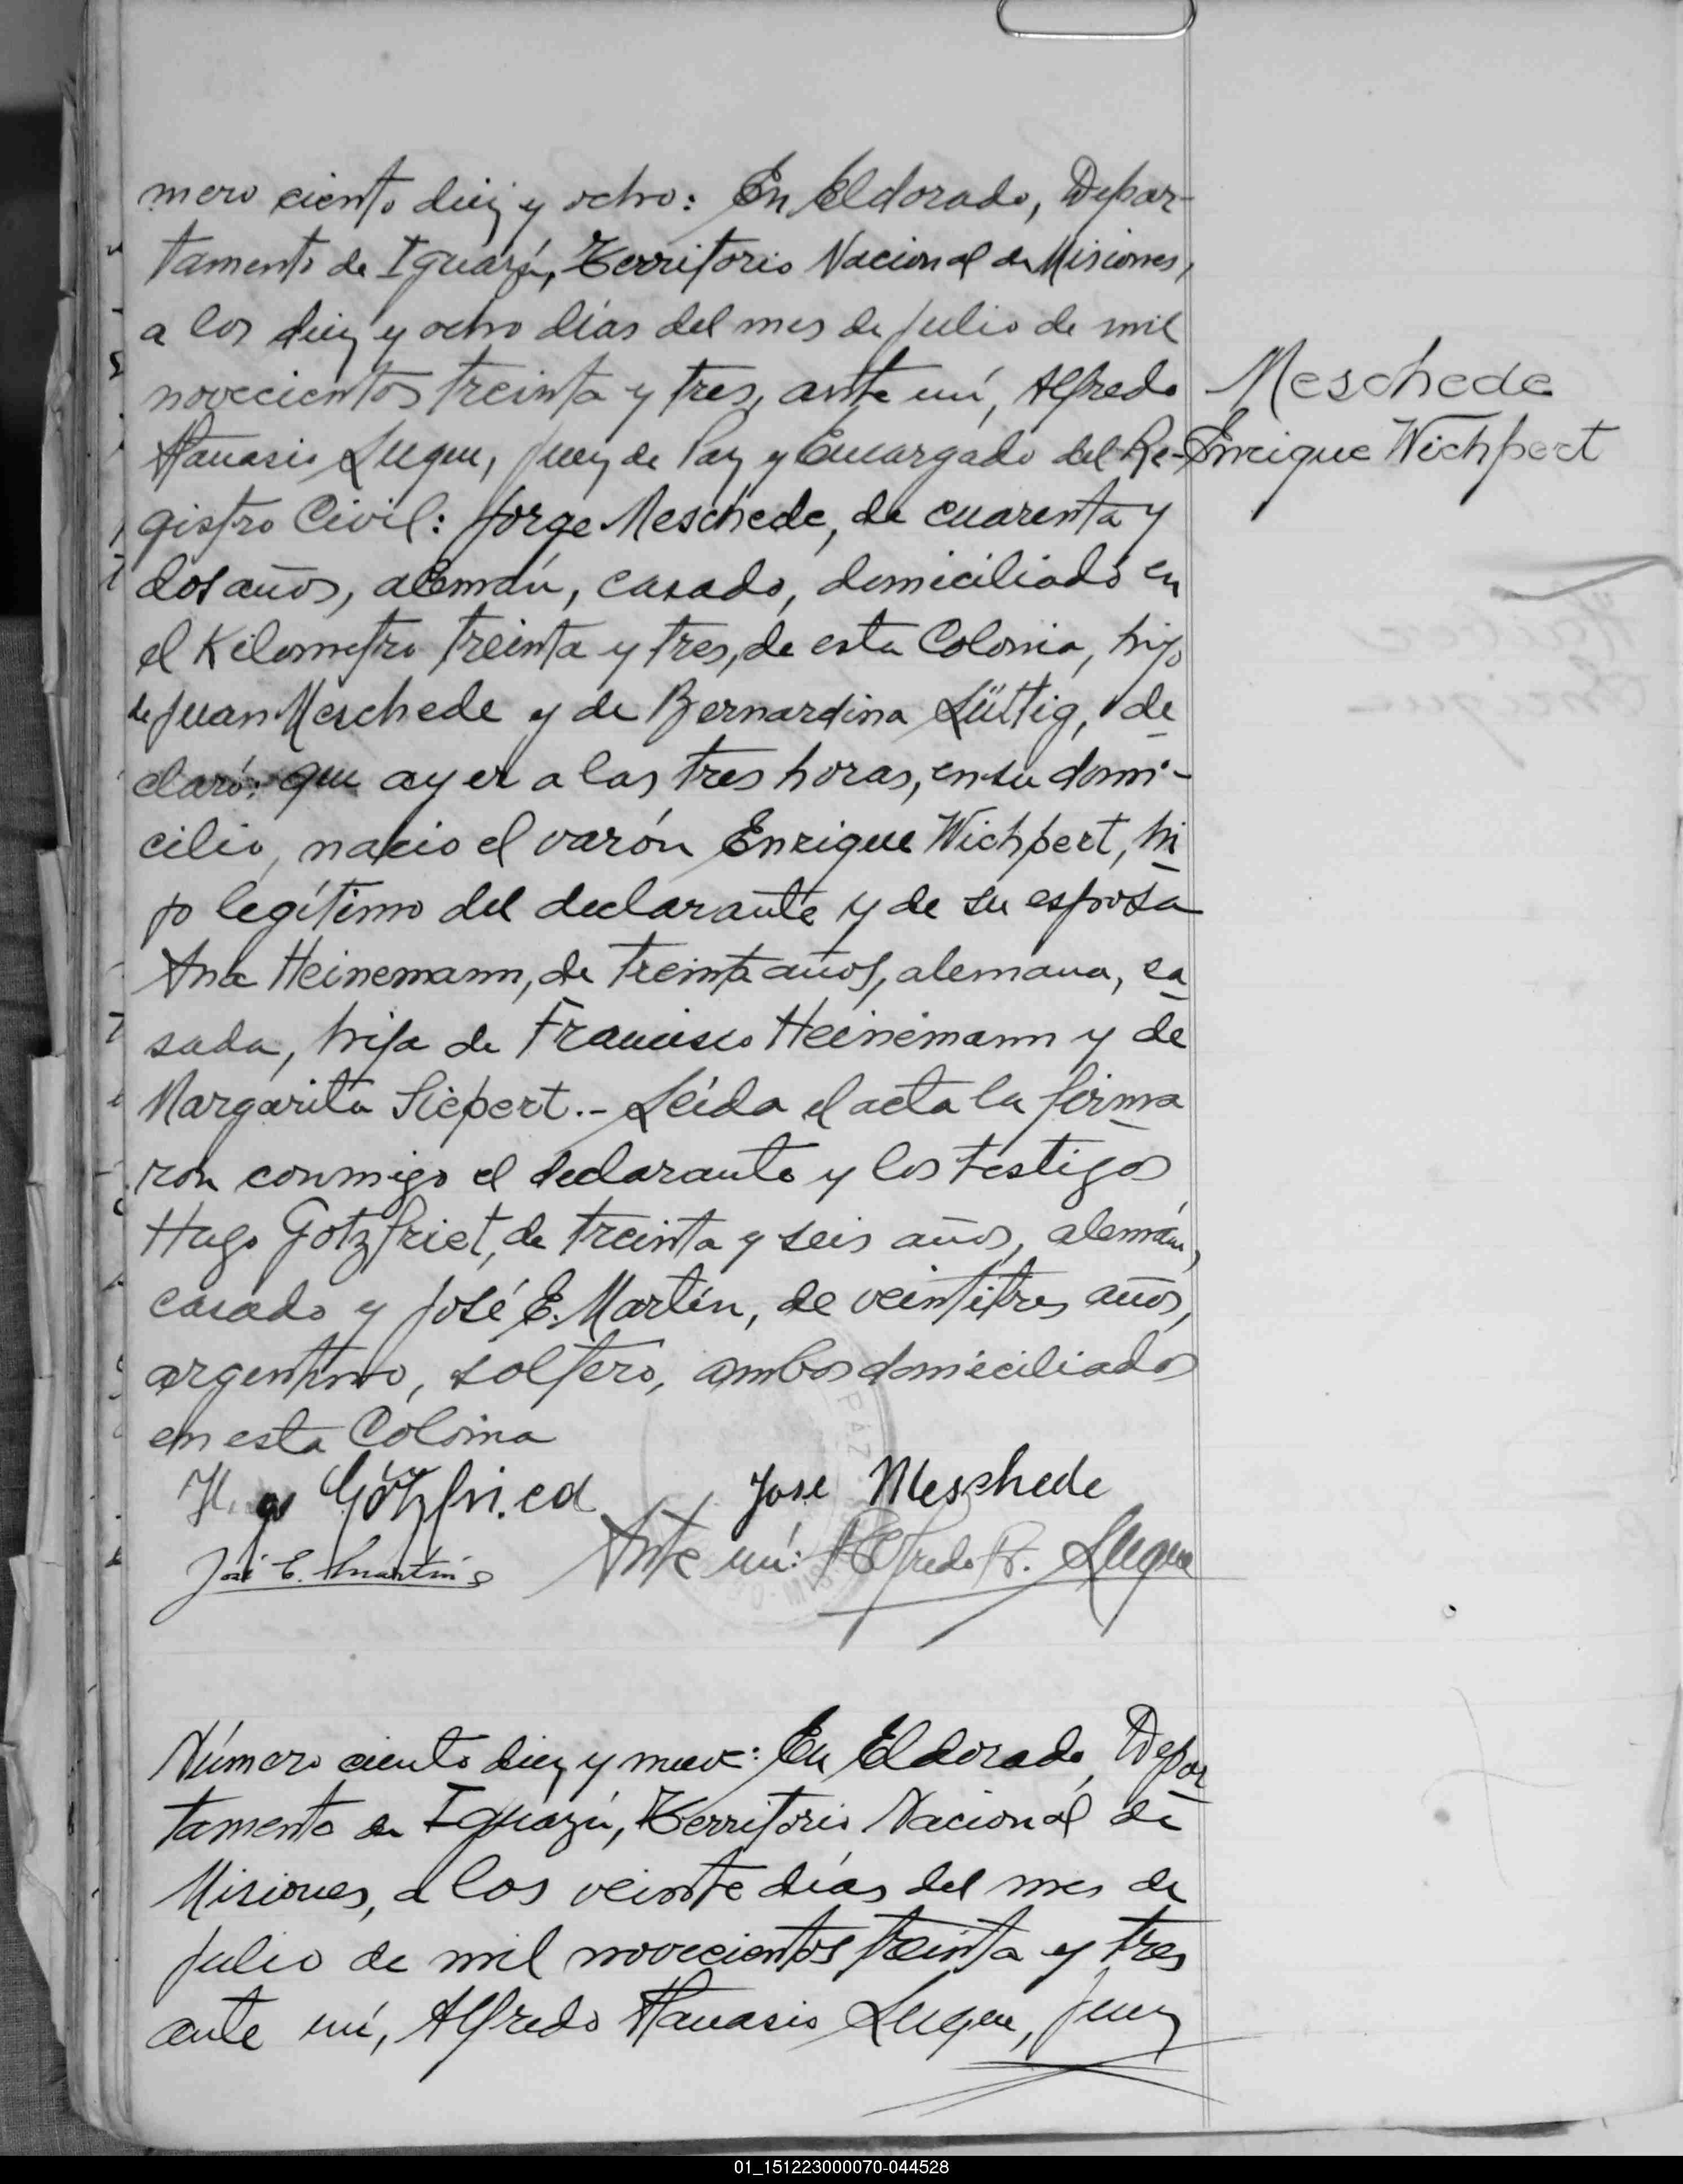 mero ciento diez y ocho: En Eldorado, Depar-
tamento de Iguazú, Territorio Nacional de Misiones,
a los diez y ocho días del mes de julio de mil
novecientos treinta y tres, ante mí, Alfredo
Atanasio Luque, Juez de Paz y Encargado del Re-
gistro Civil: Jorge Meschede, de cuarenta y
dos años, alemán, casado, domiciliado en
el Kilometro treinta y tres, de esta Colonia, hijo
de Juan Meschede y de Bernardina Lüttig, de
claró: que ayer a las tres horas, en su domi-
cilio, nacio el varón Enrique Wichpert, hi
jo legítimo del declarante y de su esposa
Ana Heinemann, de treinta años, alemana, ca
sada, hija de Francisco Heinemann y de
Margarita Siepert.- Leída el acta la firma
ron conmigo el declarante y los testigos
Hugo Gotzfriet, de treinta y seis años, alemán,
casado y José E. Martín, de veintitres años,
argentino, soltero, ambos domiciliados
en esta Colonia
Meschede
Enrique Wichpert
Götzfried
Jose Meschede
José E. Martín
Ante mí: Alfredo A. Luque
PAZ
Número ciento diez y nueve: En Eldorado, Depar
tamento de Iguazú, Territorio Nacional de
Misiones, a los veinte días del mes de
julio de mil novecientos treinta y tres
ante mí, Alfredo Atanasio Luque, Juez
01_151223000070-044528